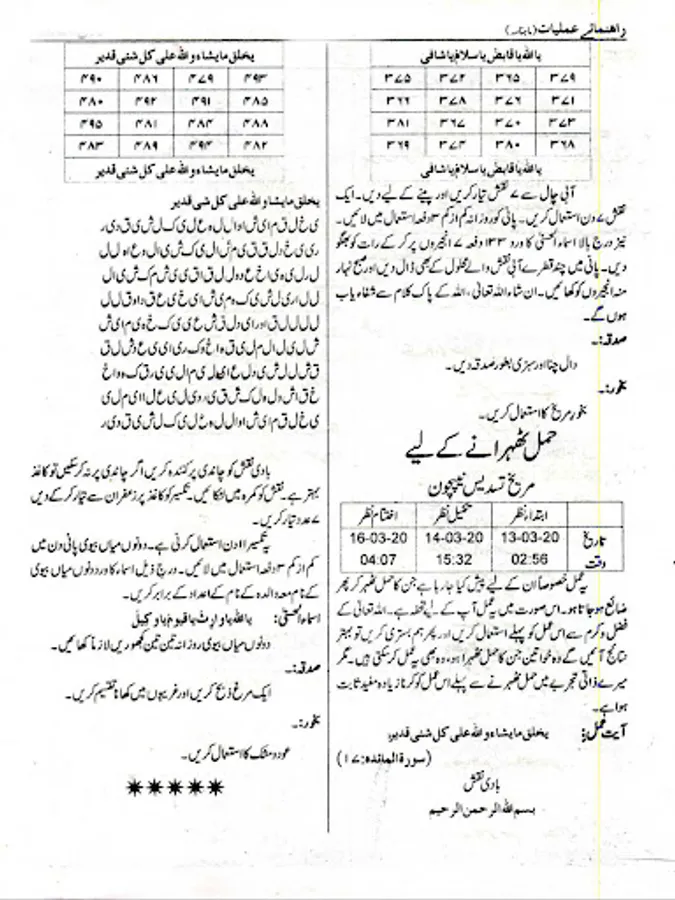 راہنمائے عملیات (ماہنامہ)
یا اللہ یا قابض یا سلام یا شافی
۳۷۹ ۳۶۵ ۳۷۲ ۳۷۵
۳۷۱ ۳۷۶ ۳۷۸ ۳۶۶
۳۷۳ ۳۷۰ ۳۶۷ ۳۸۱
۳۶۸ ۳۸۰ ۳۷۴ ۳۶۹
یا اللہ یا قابض یا سلام یا شافی
آبی چال سے ۷ نقش تیار کریں اور پینے کے لیے دیں۔ ایک
نقش ۷ دن استعمال کریں۔ پانی کو روزانہ کم از کم ۳ دفعہ استعمال میں لائیں۔
نیز درج بالا اسماء الحسنٰی کا ورد ۱۳۳ دفعہ ۷ انجیروں پر کر کے رات کو بھگو
دیں۔ پانی میں چند قطرے آبی نقش والے محلول کے بھی ڈال دیں اور صبح نہار
منہ انجیروں کو کھائیں۔ ان شاء اللہ تعالیٰ، اللہ کے پاک کلام سے شفاء یاب
ہوں گے۔
صدقہ:۔
دال چنا اور سبزی بطور صدقہ دیں۔
بخور:۔
بخور مریخ کا استعمال کریں۔
حمل ٹھہرانے کے لیے
مریخ تسدیس نیپچون
ابتداء نظر تکمیل نظر اختتام نظر
تاریخ 13-03-20 14-03-20 16-03-20
وقت 02:56 15:32 04:07
یہ عمل خصوصاً ان کے لیے پیش کیا جا رہا ہے جن کا حمل ٹھہر کر پھر
ضائع ہو جاتا ہو۔ اس صورت میں یہ عمل آپ کے لیے تحفہ ہے۔ اللہ تعالیٰ کے
فضل و کرم سے اس عمل کو پہلے استعمال کریں اور پھر ہم بستری کریں تو بہتر
نتائج آئیں گے وہ خواتین جن کا حمل ٹھہرا ہو، وہ بھی یہ عمل کر سکتی ہیں۔ مگر
میرے ذاتی تجربے میں حمل ٹھہرنے سے پہلے اس عمل کو کرنا زیادہ مفید ثابت
ہوا ہے۔
آیت عمل: یخلق مایشاء واللہ علی کل شئی قدیر
(سورۃ المائدہ: ۱۷)
بادی نقش
بسم اللہ الرحمن الرحیم
یخلق مایشاء واللہ علی کل شئی قدیر
۴۹۳ ۴۷۹ ۴۸۶ ۴۹۰
۴۸۵ ۴۹۱ ۴۹۲ ۴۸۰
۴۸۸ ۴۸۴ ۴۸۱ ۴۹۵
۴۸۲ ۴۹۴ ۴۸۹ ۴۸۳
یخلق مایشاء واللہ علی کل شئی قدیر
یخلق مایشاء واللہ علی کل شی قدیر
ی خ ل ق م ا ی ش ا و ا ل ل ہ ع ل ی ک ل ش ی ق د ی ر
ی خ ل ق م ا ی ش ا و ا ل ل ہ ع ل ی ک ل ش ی ق د ی ر
بادی نقش کو چاندی پر کندہ کریں اگر چاندی پر نہ کر سکیں تو کاغذ
بہتر ہے۔ نقش کو کمرہ میں لٹکائیں۔ تکسیر کو کاغذ پر زعفران سے تیار کر کے دیں
۷ عدد تیار کریں۔
یہ تکسیر ۱۱ دن استعمال کرنی ہے۔ دونوں میاں بیوی پانی دن میں
کم از کم ۳ دفعہ استعمال میں لائیں۔ درج ذیل اسماء کا ورد دونوں میاں بیوی
کے نام معہ والدہ کے نام کے اعداد کے برابر کریں۔
اسماء الحسنٰی: یا اللہ یا وارث یا قیوم یا وکیل
دونوں میاں بیوی روزانہ تین تین کھجوریں لازماً کھائیں۔
صدقہ:۔
ایک مرغ ذبح کریں اور غریبوں میں کھانا تقسیم کریں۔
بخور:۔
عود و مشک کا استعمال کریں۔